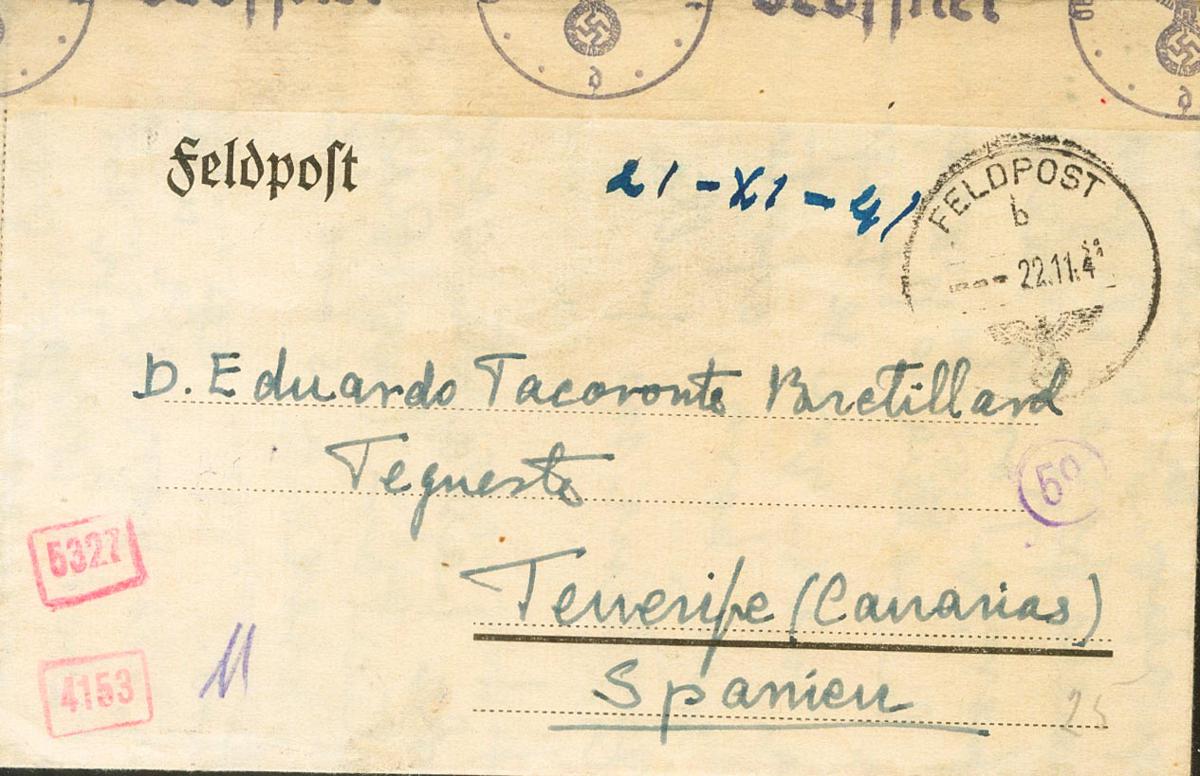 Geöffnet
Geöffnet
d
d
Feldpost
21-XI-41
FELDPOST
b
--- 22.11.4
D. Eduardo Tacoronte Bretillard
Tegueste
5327
Tenerife (Canarias)
4153
Spanien
25